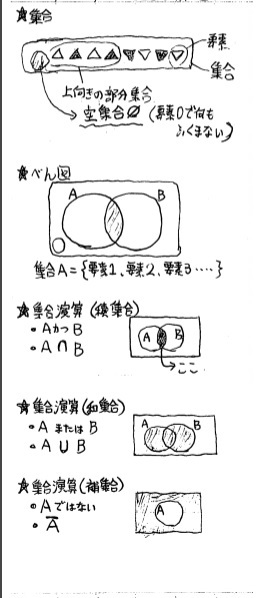 ☆集合
要素
集合
上向きの部分集合
→空集合∅(要素0で何も
ふくまない)
☆べん図
A B
集合A={要素1、要素2、要素3‥‥}
☆集合演算(積集合)
・AかつB
・A∩B
A B
→ここ
☆集合演算(和集合)
・AまたはB
・A∪B
A B
☆集合演算(補集合)
・Aではない
・A̅
A